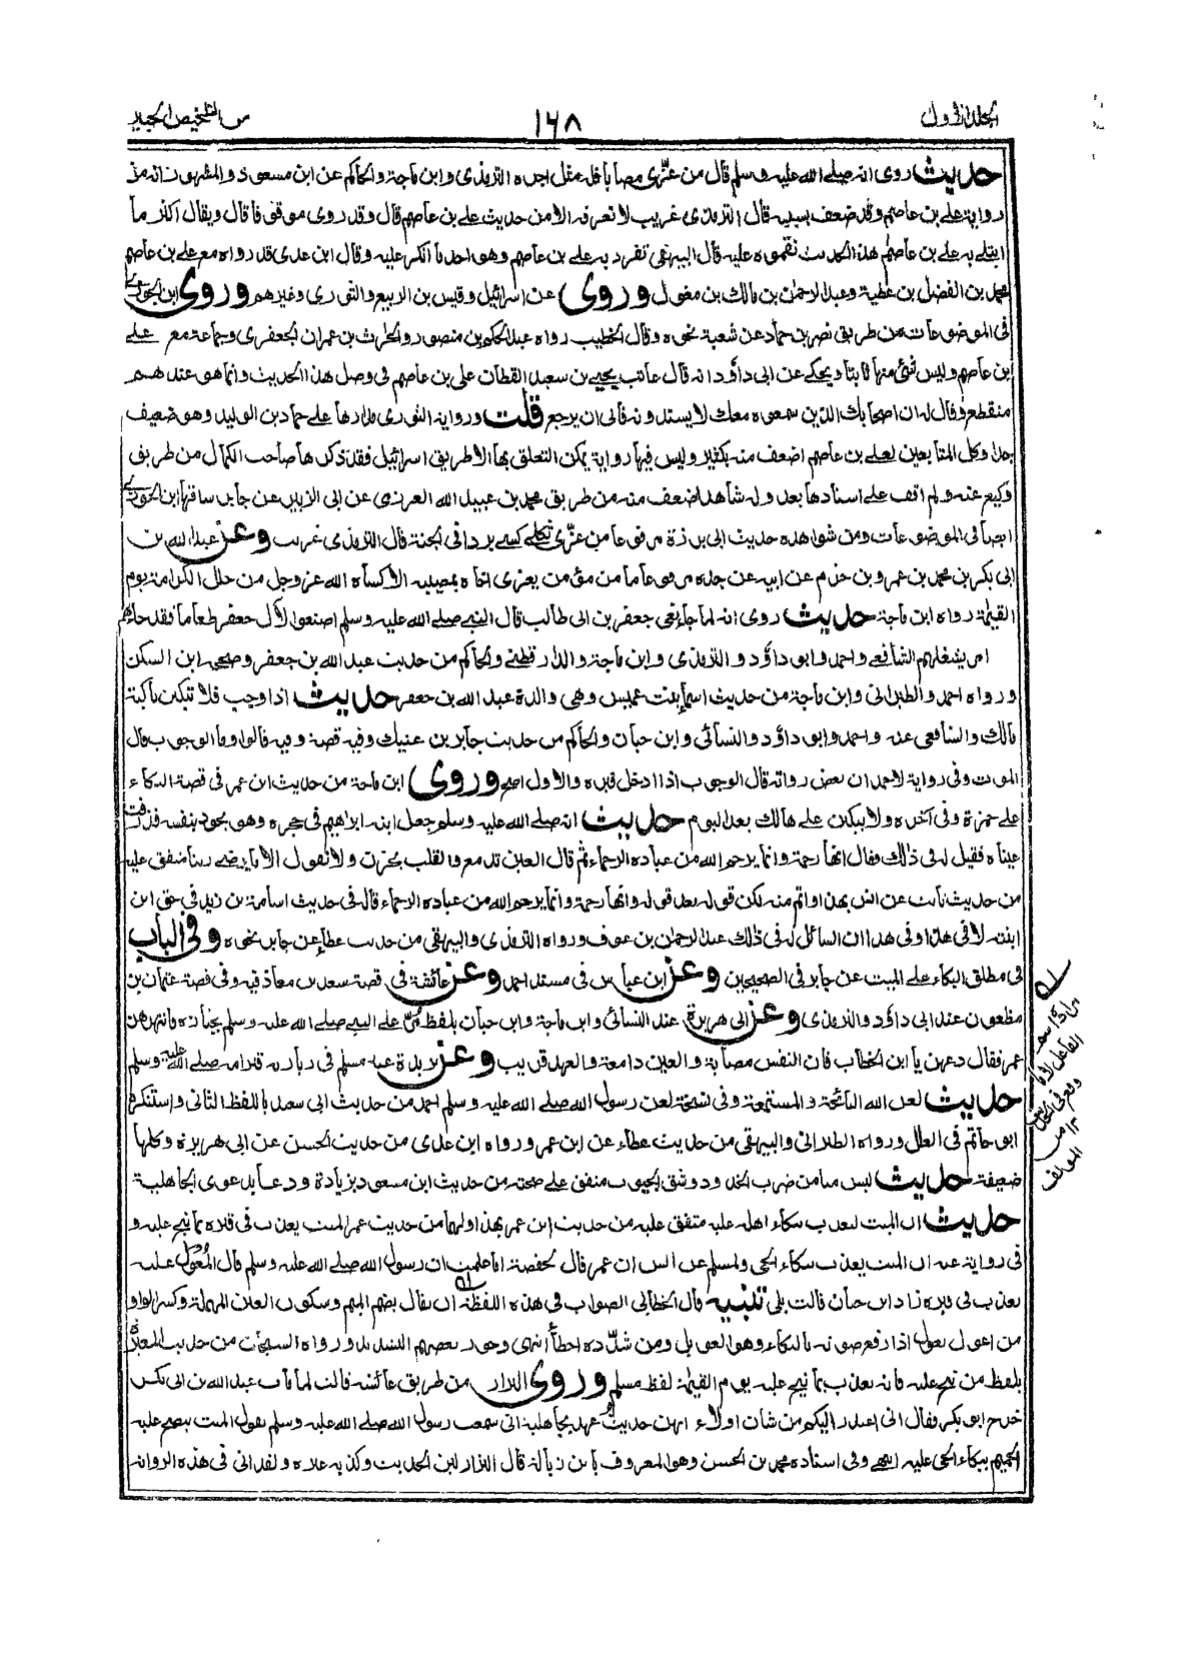 المجلد الاول
١٦٨
من التلخيص الحبير
حديث روى انه صلے الله عليه وسلم قال من عزّى مصابا فله مثل اجره الترمذى وابن ماجة والحاكم عن ابن مسعود والمشهور انه من
رواية علے بن عاصم وقد ضعف بسببه قال الترمذى غريب لا نعرفه الا من حديث علے بن عاصم قال وقد روى موقوفا قال ويقال اكثر ما
ابتلے به علے بن عاصم هذا الحديث نقموه عليه قال البيهقى تفرد به علے بن عاصم وهو احد ما انكر عليه وقال ابن عدى قد رواه مع علے بن عاصم
محمد بن الفضل بن عطية وعبد الرحمن بن مالك بن مغول وروى عن اسرائيل وقيس بن الربيع والثورى وغيرهم وروى ابن الجوزے
فى الموضوعات من طريق نصر بن حماد عن شعبة نحوه وقال الخطيب رواه عبد الحكم بن منصور والحرث بن عمران الجعفرى وجماعة مع علے
ابن عاصم وليس شئ منها ثابتا ويحكے عن ابى داؤد انه قال عاتب يحيے بن سعيد القطان على بن عاصم فى وصل هذا الحديث وانما هو عندهم
منقطع وقال له ان اصحابك الذين سمعوه معك لا يسندونه فابى ان يرجع قلت ورواية الثورى مدارها علے حماد بن الوليد وهو ضعيف
جدا وكل المتابعين لعلے بن عاصم اضعف منه بكثير وليس فيها رواية يمكن التعلق بها الا طريق اسرائيل فقد ذكرها صاحب الكمال من طريق
وكيع عنه ولم اقف علے اسنادها بعد وله شاهد اضعف منه من طريق محمد بن عبيد الله العرزمى عن ابى الزبير عن جابر ساقها ابن الجوزے
ايضا فى الموضوعات ومن شواهده حديث ابى برزة مرفوعا من عزّى ثكلے كسے بردا فى الجنة قال الترمذى غريب وعن عبد الله بن
ابى بكر بن محمد بن عمرو بن حزم عن ابيه عن جده مرفوعا ما من مؤمن يعزى اخاه بمصيبة الا كساه الله عز وجل من حلل الكرامة يوم
القيٰمة رواه ابن ماجة حديث روى انه لما جاء نعى جعفر بن ابى طالب قال النبے صلے الله عليه وسلم اصنعوا لآل جعفر طعاما فقد جاءهم
امر يشغلهم الشافعے واحمد وابو داؤد والترمذى وابن ماجة والدارقطنے والحاكم من حديث عبد الله بن جعفر وصححه ابن السكن
ورواه احمد والطبرانى وابن ماجة من حديث اسماء بنت عميس وهى والدة عبد الله بن جعفر حديث اذا وجب فلا تبكين باكية
مالك والشافعى عنه واحمد وابو داؤد والنسائى وابن حبان والحاكم من حديث جابر بن عتيك وفيه قصة وفيه قالوا وما الوجوب قال
الموت وفى رواية لاحمد ان بعض رواته قال الوجوب اذا ادخل قبره والاول اصح وروى ابن ماجة من حديث ابن عمر فى قصة البكاء
على حمزة وفى آخره ولا يبكين علے هالك بعد اليوم حديث انه صلے الله عليه وسلم جعل ابنه ابراهيم فى حجره وهو يجود بنفسه فذرفت
عيناه فقيل له فى ذلك فقال انها رحمة وانما يرحم الله من عباده الرحماء ثم قال العين تدمع والقلب يحزن ولا نقول الا ما يرضے ربنا متفق عليه
من حديث ثابت عن انس بهذا واتم منه لكن قوله بعد قوله وانها رحمة وانما يرحم الله من عباده الرحماء قاله فى حديث اسامة بن زيد فى حق ابن
ابنته لا فى هذا وفى هذا ان السائل له فى ذلك عبد الرحمن بن عوف ورواه الترمذى والبيهقى من حديث عطاء عن جابر نحوه وفى الباب
فى مطلق البكاء علے الميت عن جابر فى الصحيحين وعن ابن عباس فى مسند احمد وعن عائشة فى قصة سعد بن معاذ فيه وفى قصة عثمان بن
مظعون عند ابى داؤد والترمذى وعن ابى هريرة عند النسائى وابن ماجة وابن حبان بلفظ مُرّ علے النبے صلے الله عليه وسلم بجنازة فانتهرهن
عمر فقال دعهن يا ابن الخطاب فان النفس مصابة والعين دامعة والعهد قريب وعن بريدة عند مسلم فى زيارته قبر امه صلے الله عليه وسلم
حديث لعن الله النائحة والمستمعة وفى نسخة لعن رسول الله صلے الله عليه وسلم احمد من حديث ابى سعيد باللفظ الثانى واستنكره
ابو حاتم فى العلل ورواه الطبرانى والبيهقى من حديث عطاء عن ابن عمر ورواه ابن عدى من حديث الحسن عن ابى هريرة وكلها
ضعيفة حديث ليس منا من ضرب الخدود وشق الجيوب متفق علے صحته من حديث ابن مسعود بزيادة ودعا بدعوى الجاهلية
حديث ان الميت ليعذب ببكاء اهله عليه متفق عليه من حديث ابن عمر بهذا ولهما من حديث عمر الميت يعذب فى قبره بما نيح عليه و
فى رواية عنه ان الميت يعذب ببكاء الحى ولمسلم عن انس ان عمر قال لحفصة اما علمت ان رسول الله صلے الله عليه وسلم قال المُعوَل عليه
يعذب فى قبره زاد ابن حبان قالت بلى تنبيه قال الخطابى الصواب فى هذه اللفظة ان يقال بضم الميم وسكون العين المهملة وكسر الواو
من اعول يعول اذا رفع صوته بالبكاء وهو العويل ومن شدّده اخطأ انتهى وجوز بعضهم التشديد ورواه الشيخان من حديث المغيرة
بلفظ من نيح عليه فانه يعذب بما نيح عليه يوم القيٰمة لفظ مسلم وروى البزار من طريق عائشة قالت لما مات عبد الله بن ابى بكر
خرج ابو بكر فقال انى اعتذر اليكم من شان اولاء انهن حديث عهد بجاهلية انى سمعت رسول الله صلے الله عليه وسلم يقول الميت ينضح عليه
الحميم ببكاء الحى عليه انتهے وفى اسناده محمد بن الحسن وهو المعروف بابن زبالة قال البزار لين الحديث وكذبه غيره ولقد اتى فى هذه الرواية
اسم
الفاعل
المؤلف